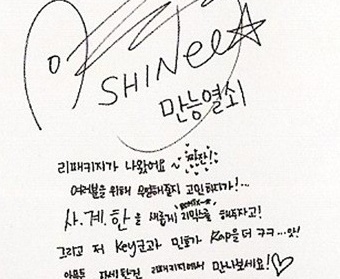 SHINee☆
만능열쇠
리패키지가 나왔어요~ 짜잔!
여러분을 위해 무얼해줄지 고민하다가!...
사.계.한을 새롭게 리믹스를 해주자고!
그리고 저 Key군과 민호가 Rap을 더 ㅋㅋ...앗!
아무튼 자세한건 리패키지에서 만나보세요!♡